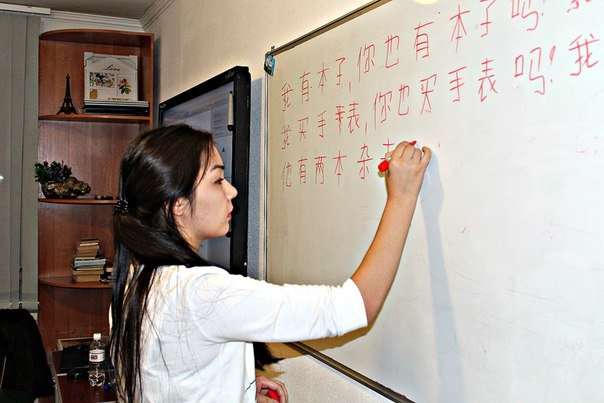 我有本子,你也有本子吗!我
我买手表,你也买手表吗!我
他有两本杂